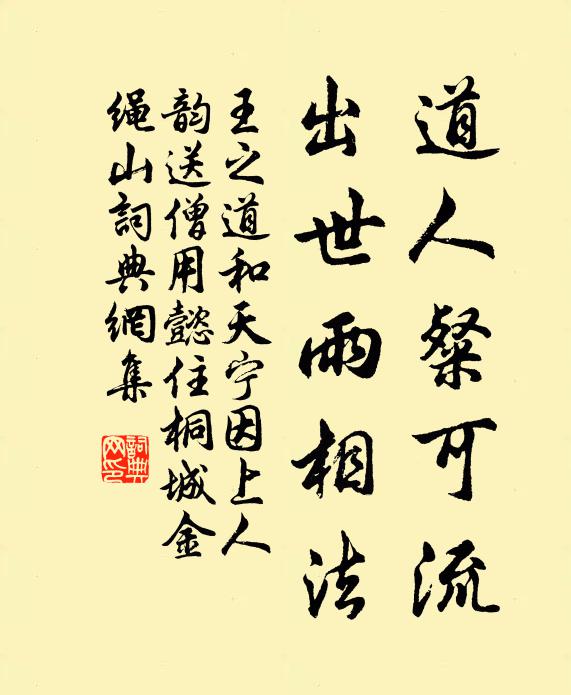 道人粲可流
出世雨相法
王之道和天宁因上人
韵送僧用懿住桐城金
绳山詞典網集
詞典
网印